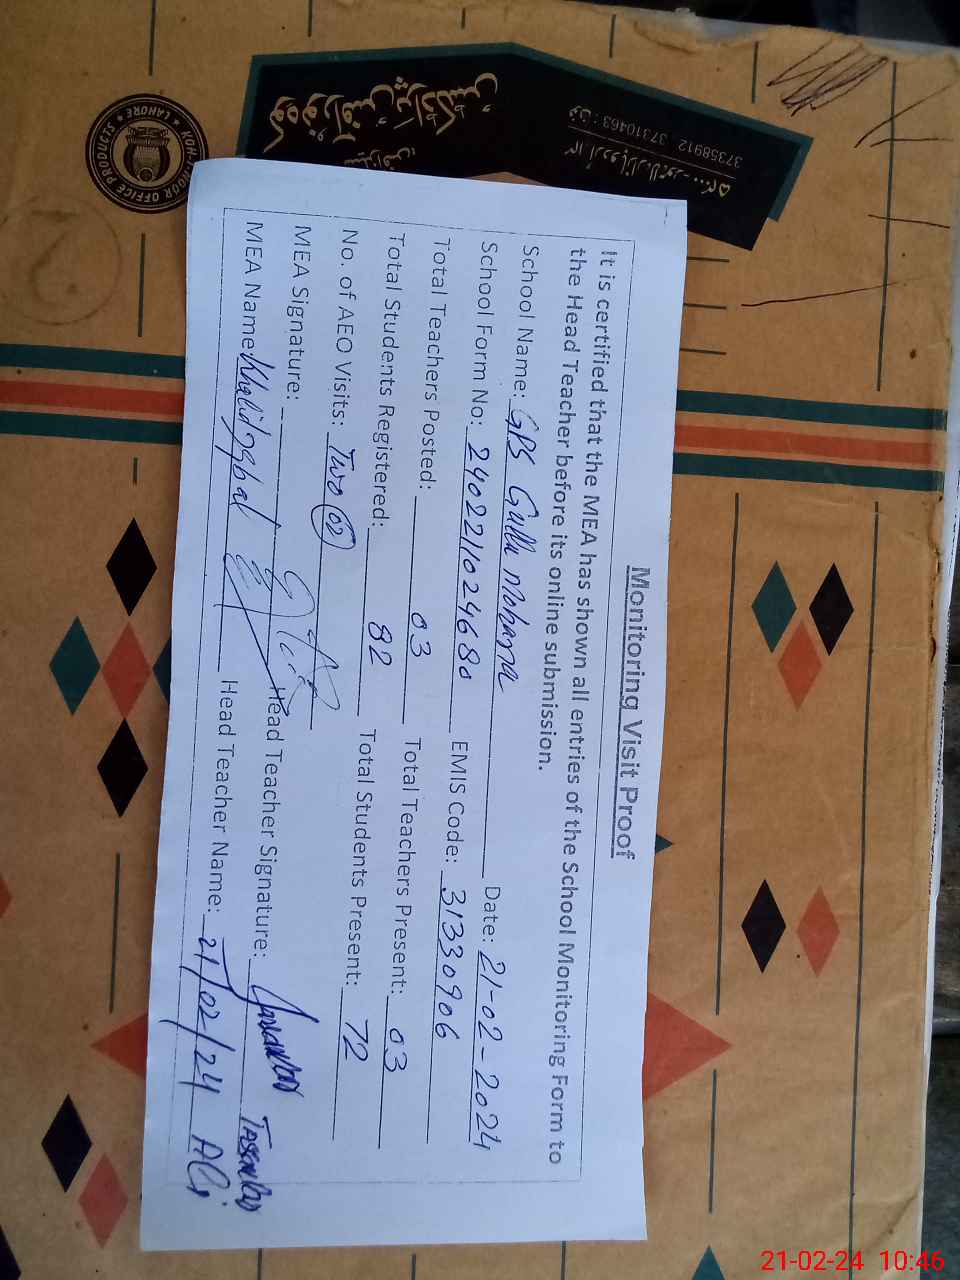 Monitoring Visit Proof
It is certified that the MEA has shown all entries of the School Monitoring Form to
the Head Teacher before its online submission.
School Name: GPS Gulla Mohama Date: 21-02-2024
School Form No: 2402211024680 EMIS Code: 31330906
Total Teachers Posted: 03 Total Teachers Present: 03
Total Students Registered: 82 Total Students Present: 72
No. of AEO Visits: Two (02)
MEA Signature: Head Teacher Signature:
MEA Name Khalid Iqbal Head Teacher Name: 21/02/24 Ali
KOH-I-NOOR OFFICE PRODUCTS
LAHORE
کوہ نور آفس پراڈکٹس
اردو بازار لاہور
فون : 37310463 37358912
21-02-24 10:46